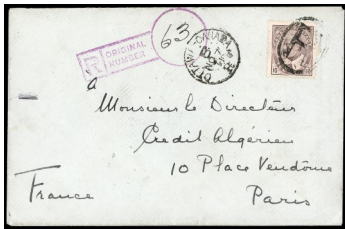 R ORIGINAL NUMBER
63
OTTAWA CANADA
10
à
Monsieur le Directeur
Credit Algérien
10 Place Vendôme
Paris
France